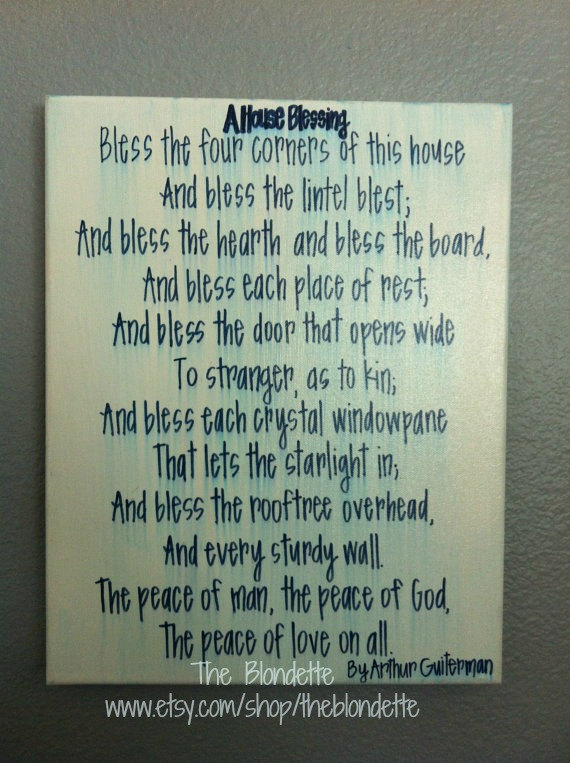 A House Blessing
Bless the four corners of this house
And bless the lintel blest;
And bless the hearth and bless the board,
And bless each place of rest;
And bless the door that opens wide
To stranger, as to kin;
And bless each crystal windowpane
That lets the starlight in;
And bless the rooftree overhead,
And every sturdy wall.
The peace of man, the peace of God,
The peace of love on all.
By Arthur Guiterman
The Blondette
www.etsy.com/shop/theblondette